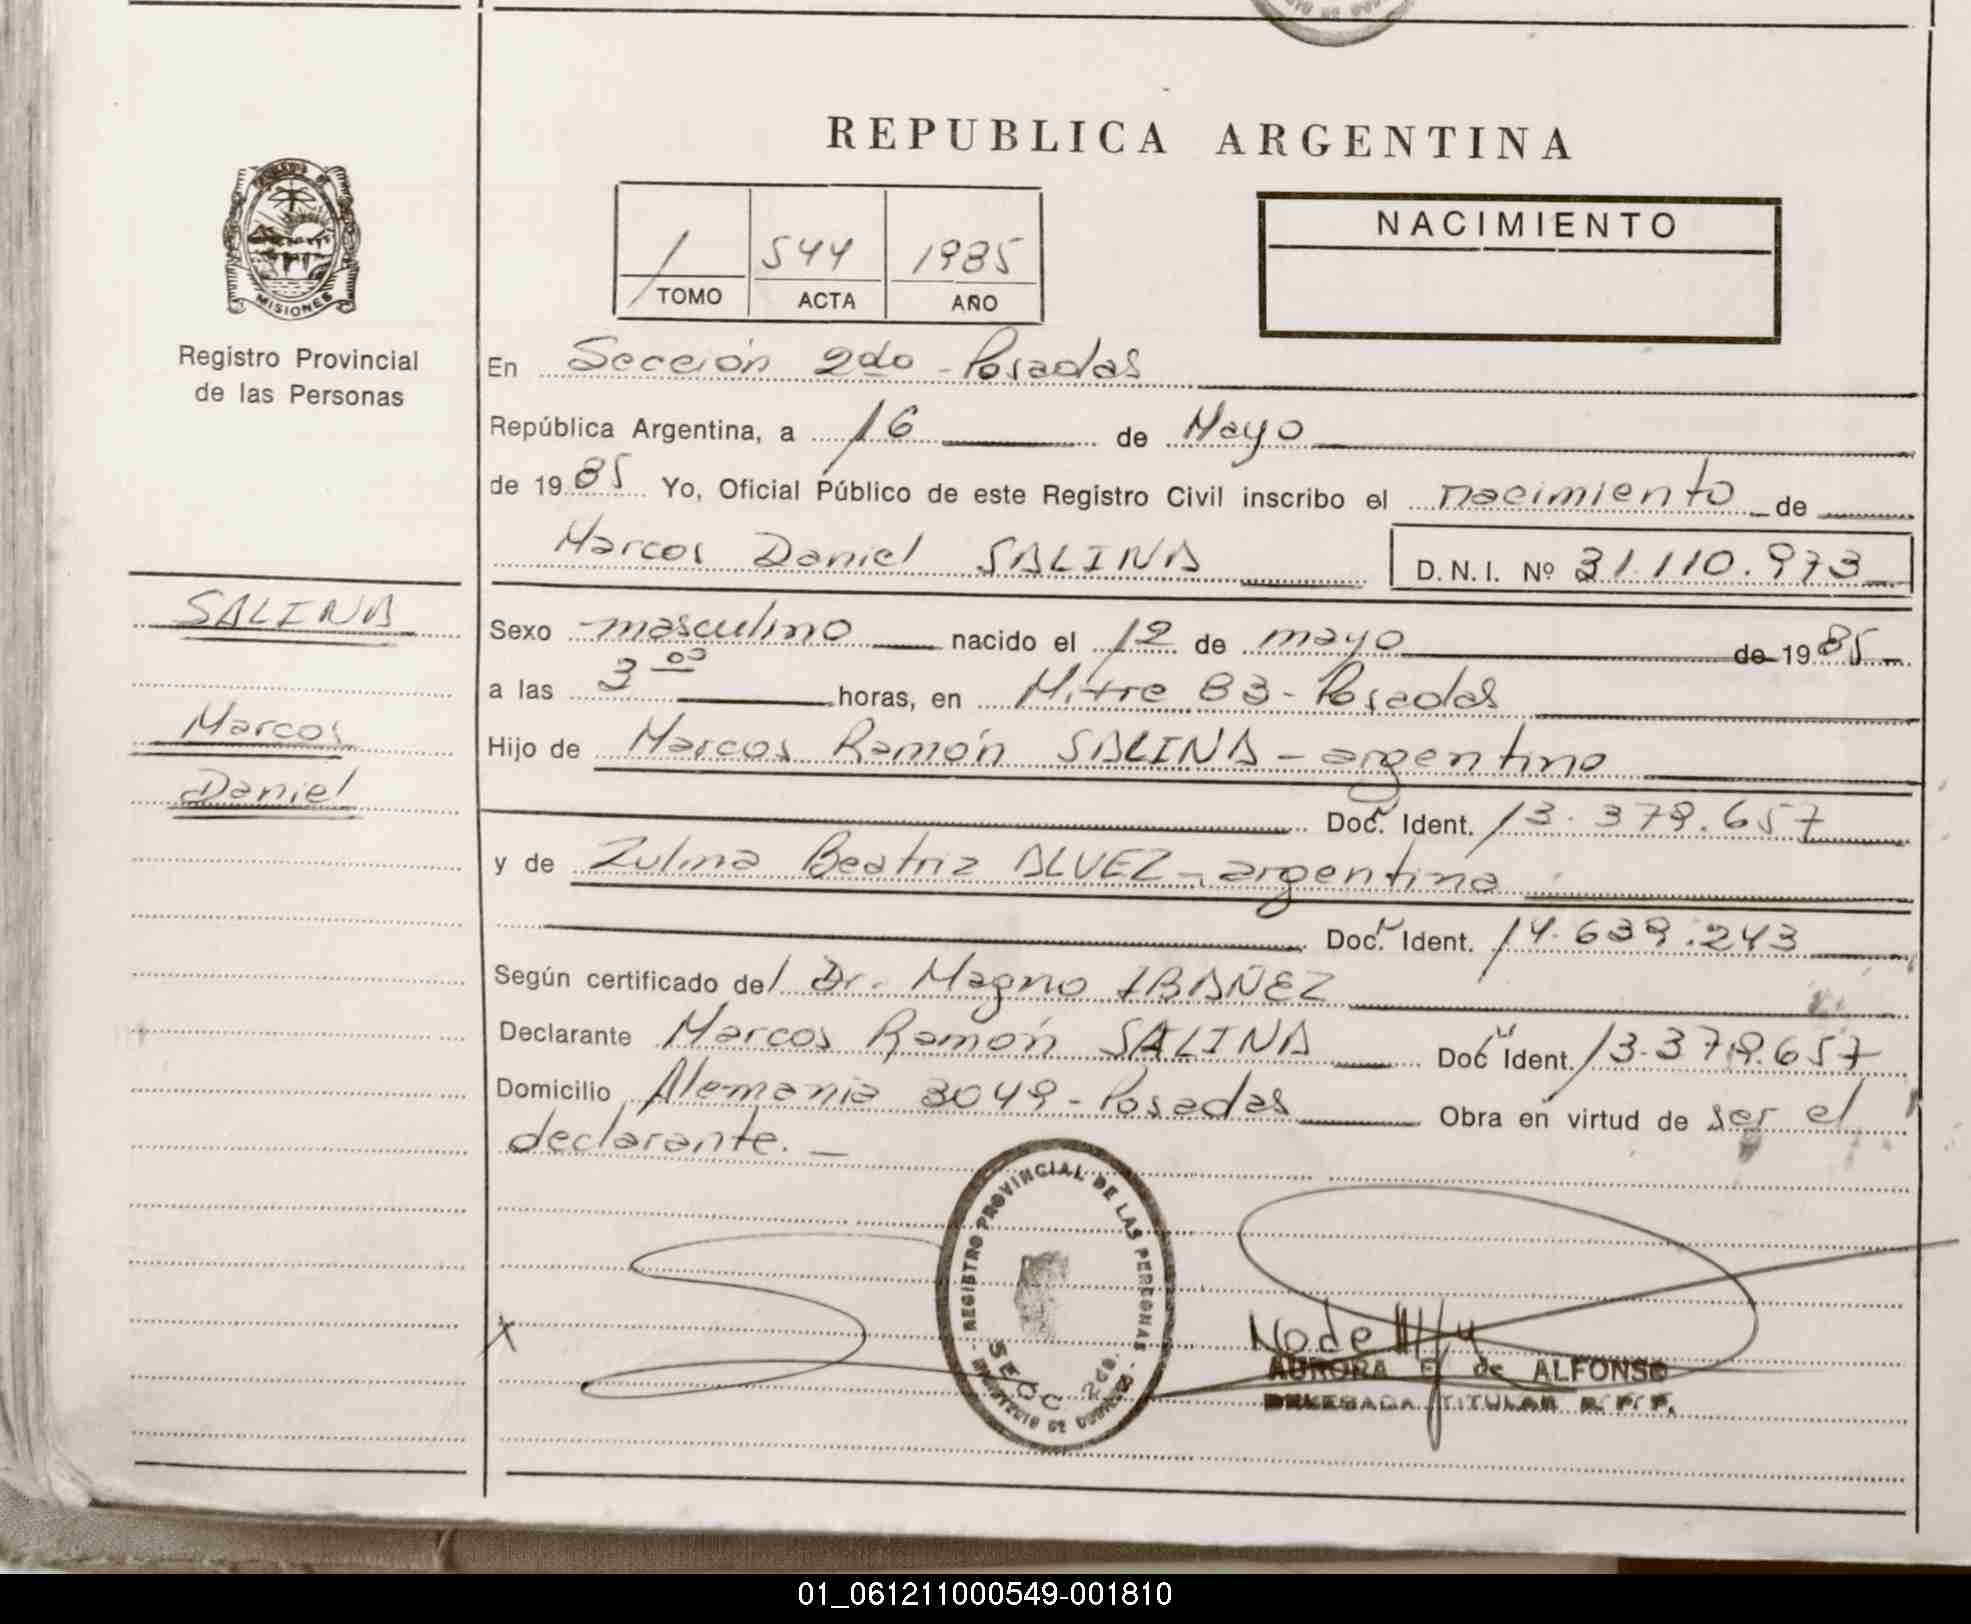 REPUBLICA ARGENTINA
MISIONES
Registro Provincial
de las Personas
1 544 1985
TOMO ACTA AÑO
NACIMIENTO
En Sección 2do - Posadas
República Argentina, a 16 de Mayo
de 1985 Yo, Oficial Público de este Registro Civil inscribo el nacimiento de
Marcos Daniel SALINA D.N.I. Nº 31.110.973
SALINA
Marcos
Daniel
Sexo masculino nacido el 12 de mayo de 1985
a las 3 00 horas, en Mitre 83 - Posadas
Hijo de Marcos Ramón SALINA - argentino
Doc. Ident. 13.379.657
y de Zulma Beatriz ALVEZ - argentina
Doc. Ident. 14.639.243
Según certificado del Dr. Magno IBAÑEZ
Declarante Marcos Ramón SALINA Doc Ident. 13.379.657
Domicilio Alemania 3049 - Posadas Obra en virtud de ser el
declarante. -
REGISTRO PROVINCIAL DE LAS PERSONAS
MINISTERIO DE GOBIERNO
SECC 2da.
AURORA E. de ALFONSO
DELEGADA TITULAR R. P. P.
01_061211000549-001810